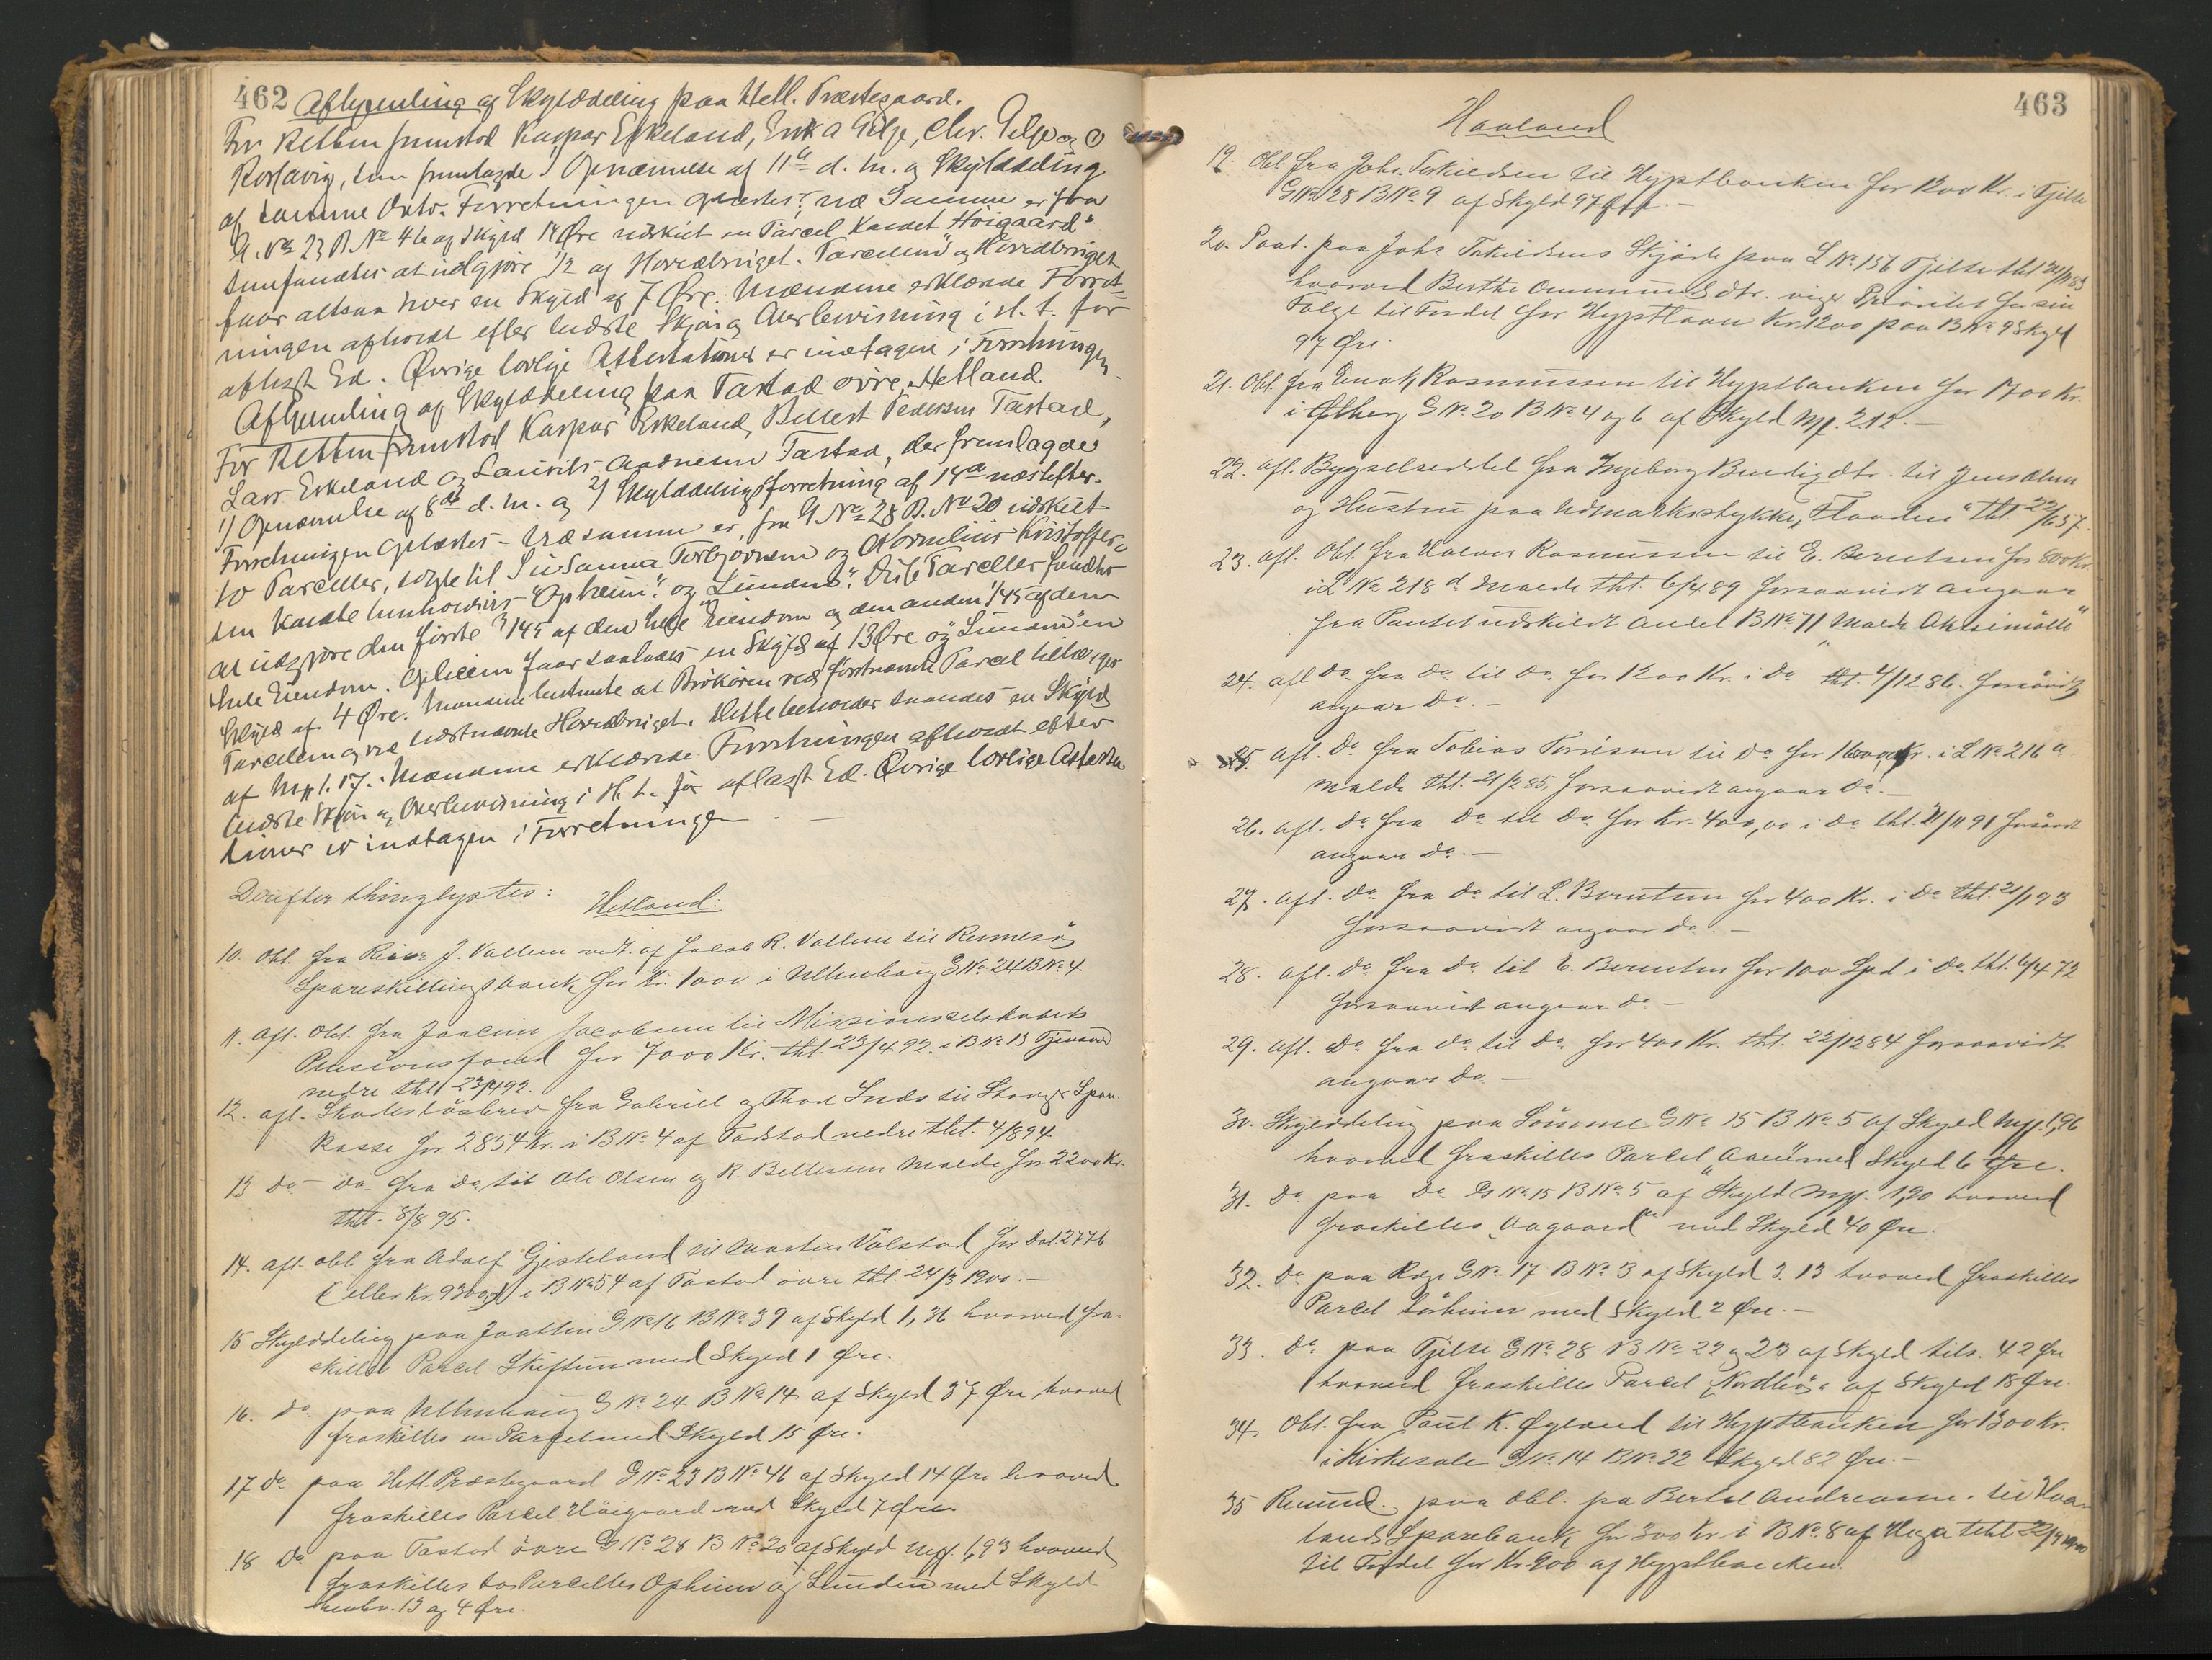 462 Afhjemling af Skylddeling paa Hetl. Præstegaard.
For Retten fremstod Kaspar Eskeland, Erik A Gilje, Chr. Gilje og O
Rossavig, som fremlagde 1 Opnævnelse af 11te d. M. og Skylddeling
af samme Dato. Forretningen oplæstes; ved Samme er fra
G. No 23 B. No 46 af Skyld 14 Øre udskilt en Parcel kaldet Hoigaard"
som fandtes at udgjøre 1/2 af Hovedbruget. Parcellen og Hovedbruget
faar altsaa hver en Skyld af 7 Øre. Mændene erklærede Forret-
ningen afholdt efter bedste Skjøn og Overbevisning i H. t. før
aflagt Ed. Øvrige lovlige Attestationer er indtagen i Forretningen.
Afhjemling af Skylddeling paa Tastad øvre, Hetland
For Retten fremstod Kaspar Eskeland, Bellest Pedersen Tastad,
Lars Eskeland og Laurits Andresen Tastad, der fremlagde
1) Opnævnelse af 8de d. M. og 2) Skylddelingsforretning af 14de næstefter.
Forretningen oplæstes - Ved samme er fra G No 28 B. No 20 udskilt
to Parceller, solgte til Susanna Torbjørnsen og Kornelius Kristoffer-
sen kaldte henholdsvis "Opheim" og "Lunden". Disse Parceller fandtes
at udgjøre den første 3/45 af den hele Eiendom og den anden 1/45 af den
hele Eiendom. Opheim faar saaledes en Skyld af 13 Øre og "Lunden" en
Skyld af 4 Øre. Mændene bestemte at Brøkøren ved førstnævnte Parcel tillægges
Parcellen og ved sidstnævnte Hovedbruget. Dette beholder saaledes en Skyld
af Mrk 1.17. Mændene erklærede Forretningen afholdt efter
bedste Skjøn og Overbevisning i H. t. før aflagt Ed. Øvrige lovlige Attesta
tioner er indtagen i Forretningen
Derefter thinglystes:
Hetland:
10. Obl. fra J. Vallem vedt. af Jacob R. Vallem til Rennesø
Spareskillingsbank for Kr. 1000 i Ullenhaug G No 24 B No 4.
11. Afl. Obl. fra Joacim Jacobsen til Missionsselskabets
Pensionsfond for 7000 Kr. thl. 23/4 92. i B No 13 Tjensvold
nedre thl 23/4 92.
12. afl. Skadesløsbrev fra Gabriel og Thore Inds til Stavgr Spar-
kasse for 2854 Kr. i B No 4 af Tastad nedre thl. 4/8 94.
13 Do - Do fra Do til Ole Olsen og R. Bellesen Malde for 2200 Kr.
thl. 8/8 95.
14. Afl. obl. fra Adolf Gjesteland til Martin Vølstad for Dol. 2776
(eller Kr. 9300) i B No 54 af Tastad øvre thl. 24/3 1900. -
15 Skylddeling paa Jaatten G No 16 B No 39 af Skyld 1,36 hvorved fra-
skilles Parcel Skiftun med Skyld 1 Øre.
16. Do paa Ullenhaug G No 24 B No 14 af Skyld 37 Øre, hvorved
fraskilles en Parcel med Skyld 15 Øre.
17 Do paa Hetl. Præstegaard G No 23 B No 46 af Skyld 14 Øre hvorved
fraskilles Parcel Høigaard med Skyld 7 Øre.
18 Do paa Tastad øvre G No 28 B No 20 af Skyld Mrk. 1,93 hvorved
fraskilles to Parceller Opheim og Lunden med Skyld
henhv. 13 og 4 Øre.
463
Haaland
19. Obl. fra Johs. Torkildsen til Hyptbanken for 1200 Kr. i Tjelte
G No 28 B No 9 af Skyld 97 Øre. -
20. Paat. paa Johs Torkildsens Skjøde paa L No 156 Tjelte thl
hvorved Berthe Ommundsdtr. viger Prioritet for sin
Følge til Fordel for Hyptlaan Kr. 1200 paa B No 9 Skyld
97 Øre.
21. Obl. fra Enok Rasmussen til Hyptbanken for 1700 Kr.
i Ølberg G No 20 B No 4 og 6 af Skyld Mrk. 2.12. -
22. Afl. Bygselseddel fra Ingeborg Bendigdtr. til Jens
og Hustru paa Udmarksstykke, "Flaaden" thl. 22/6 57.
23. Afl. Obl. fra Halvor Rasmussen til E. Berntsen for 800 Kr.
i L No 218 d Malde thl. 6/4 89 forsaavidt angaar
fra Pantet udskildt Andel B No 71 "Malde Oliemølle"
24. afl Do fra Do til Do for 1200 Kr. i Do thl. 4/12 86. forsavidt
angaar Do. -
25. Afl. Do fra Tobias Tørrisen til Do for 1600 Kr. i L No 216 a
Malde thl. 21/2 85, forsaavidt angaar Do. -
26. Afl. Do fra Do til Do for Kr. 400,00 i Do thl. 21/11 91 forsavidt
angaar Do. -
27. Afl. Do fra Do til L. Berntsen for 400 Kr. i Do thl. 21/1 93
forsaavidt angaar Do. -
28. Afl. Do fra Do til E. Berntsen for 100 Spd i Do thl. 6/4 72
forsaavidt angaar Do -
29. Afl. Do fra Do til Do for 400 Kr. thl. 22/12 84 forsaavidt
angaar Do -
30. Skylddeling paa Sømme G No 15 B No 5 af Skyld Mrk. 1,96
hvorved fraskilles Parcel "Aaen" med Skyld 6 Øre.
31. Do paa Do G No 15 B No 5 af Skyld Mrk. 1,90 hvorved
fraskilles "Aagaard" med Skyld 40 Øre.
32. Do paa Røge G No 17 B No 3 af Skyld 3.13 hvorved fraskilles
Parcel Sørheim med Skyld 2 Øre. -
33. Do paa Tjelte G No 28 B No 22 og 23 af Skyld tils. 42 Øre
hvorved fraskilles Parcel "Nordbø" af Skyld 18 Øre.
34. Obl. fra Paul K. Øgland til Hyptbanken for 1300 Kr.
i Kirkesole G No 14 B No 22 Skyld 82 Øre. -
35 paa Obl. fra Bertel Andreasen til Haa-
lands Sparebank for 300 Kr. i B No 8 af Haga thl
til Fordel for Kr. 900 af Hyptbanken.